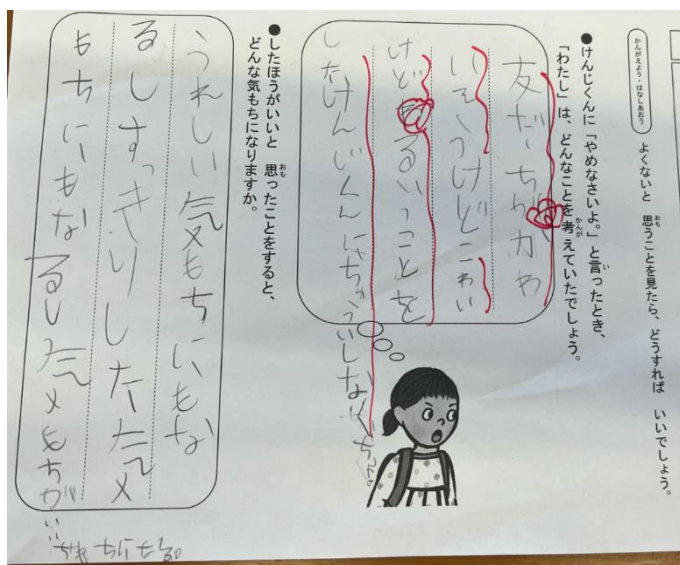 かんがえよう・はなしあおう
よくないと 思うことを見たら、どうすれば いいでしょう。
●けんじくんに「やめなさいよ。」と言ったとき、
「わたし」は、どんなことを考えていたでしょう。
友だちがかわ
いそうけどこわい
けど わるいことを
したけんじくんにちゅういしなくちゃ
●したほうがいいと 思ったことをすると、
どんな気もちになりますか。
うれしい気もちにもな
るしすっきりした気
もちにもなるし気もちがいい